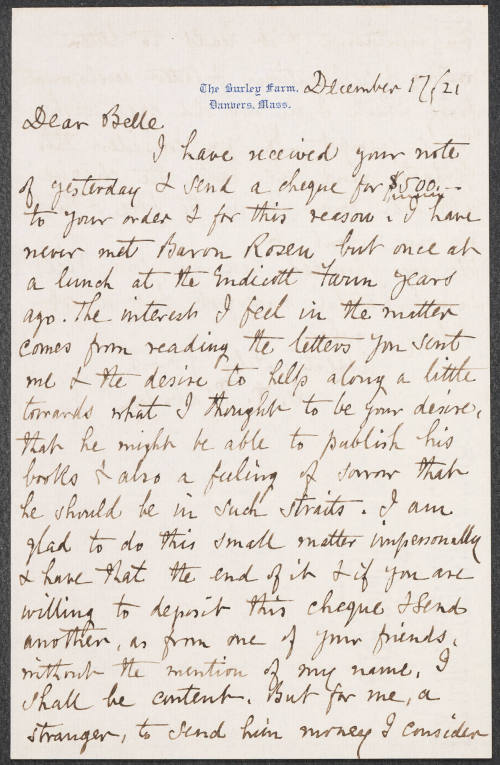 The Burley Farm,
Danvers, Mass.
December 17/21
Dear Belle
I have received your note
of yesterday & send a cheque for $500.--
to your order & for this reason. I have
never met Baron Rosen but once at
a lunch at the Endicott Farm years
ago. The interest I feel in the matter
comes from reading the letters you sent
me & the desire to help along a little
towards what I thought to be your desire,
that he might be able to publish his
books & also a feeling of sorrow that
he should be in such straits. I am
glad to do this small matter impersonally
& have that the end of it & if you are
willing to deposit this cheque & send
another, as from one of your friends,
without the mention of my name, I
shall be content. But for me, a
stranger, to send him money I consider